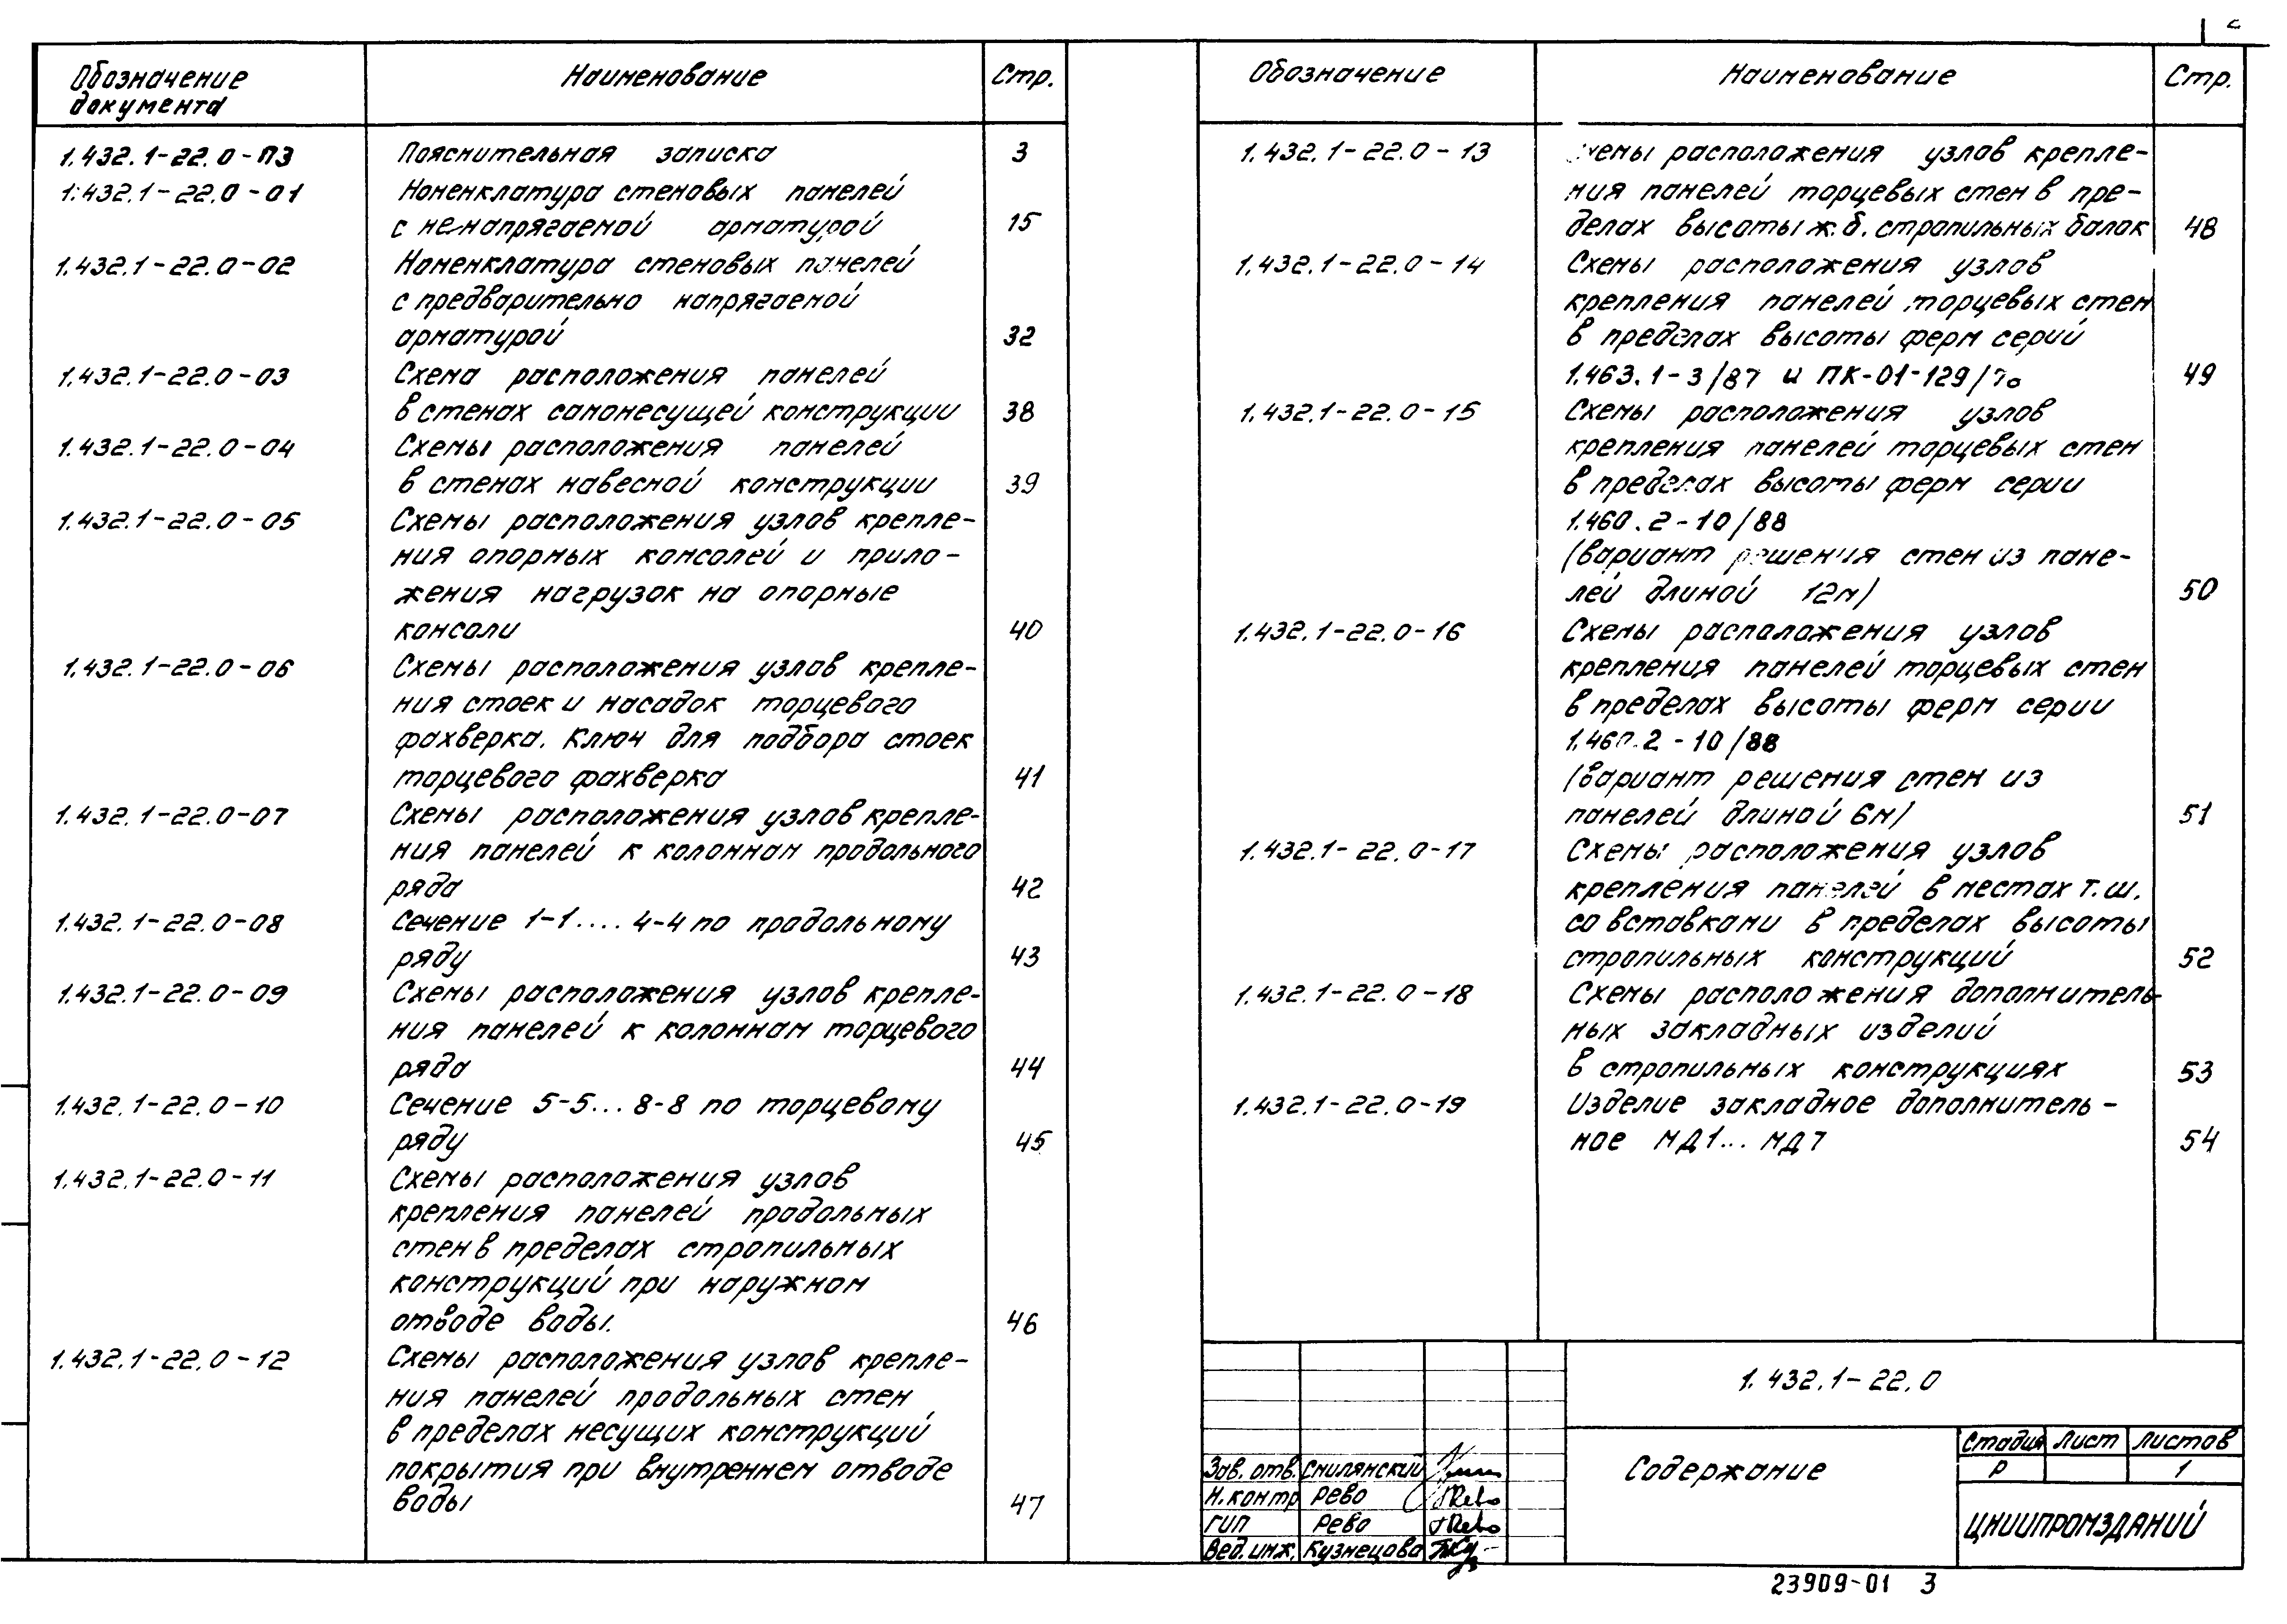 2
Обозначение документа Наименование Стр.
1.432.1-22.0-ПЗ Пояснительная записка 3
1.432.1-22.0-01 Номенклатура стеновых панелей
с ненапрягаемой арматурой 15
1.432.1-22.0-02 Номенклатура стеновых панелей
с предварительно напрягаемой
арматурой 32
1.432.1-22.0-03 Схема расположения панелей
в стенах самонесущей конструкции 38
1.432.1-22.0-04 Схемы расположения панелей
в стенах навесной конструкции 39
1.432.1-22.0-05 Схемы расположения узлов крепле-
ния опорных консолей и прило-
жения нагрузок на опорные
консоли 40
1.432.1-22.0-06 Схемы расположения узлов крепле-
ния стоек и насадок торцевого
фахверка. Ключ для подбора стоек
торцевого фахверка 41
1.432.1-22.0-07 Схемы расположения узлов крепле-
ния панелей к колоннам продольного
ряда 42
1.432.1-22.0-08 Сечение 1-1.... 4-4 по продольному
ряду 43
1.432.1-22.0-09 Схемы расположения узлов крепле-
ния панелей к колоннам торцевого
ряда 44
1.432.1-22.0-10 Сечение 5-5... 8-8 по торцевому
ряду 45
1.432.1-22.0-11 Схемы расположения узлов
крепления панелей продольных
стен в пределах стропильных
конструкций при наружном
отводе воды. 46
1.432.1-22.0-12 Схемы расположения узлов крепле-
ния панелей продольных стен
в пределах несущих конструкций
покрытия при внутреннем отводе
воды 47
Обозначение Наименование Стр.
1.432.1-22.0-13 Схемы расположения узлов крепле-
ния панелей торцевых стен в пре-
делах высоты ж.б. стропильных балок 48
1.432.1-22.0-14 Схемы расположения узлов
крепления панелей торцевых стен
в пределах высоты ферм серий
1.463.1-3/87 и ПК-01-129/78 49
1.432.1-22.0-15 Схемы расположения узлов
крепления панелей торцевых стен
в пределах высоты ферм серии
1.460.2-10/88
(вариант решения стен из пане-
лей длиной 12м) 50
1.432.1-22.0-16 Схемы расположения узлов
крепления панелей торцевых стен
в пределах высоты ферм серии
1.460.2-10/88
(вариант решения стен из
панелей длиной 6м) 51
1.432.1-22.0-17 Схемы расположения узлов
крепления панелей в местах т.ш.
со вставками в пределах высоты
стропильных конструкций 52
1.432.1-22.0-18 Схемы расположения дополнитель-
ных закладных изделий
в стропильных конструкциях 53
1.432.1-22.0-19 Изделие закладное дополнитель-
ное МД1... МД7 54
1.432.1-22.0
Содержание
Стадия Лист Листов
Р 1
ЦНИИПРОМЗДАНИЙ
Зав. отв. Смилянский
Н.контр Рево
ГИП Рево
Вед.инж. Кузнецова
23909-01 3